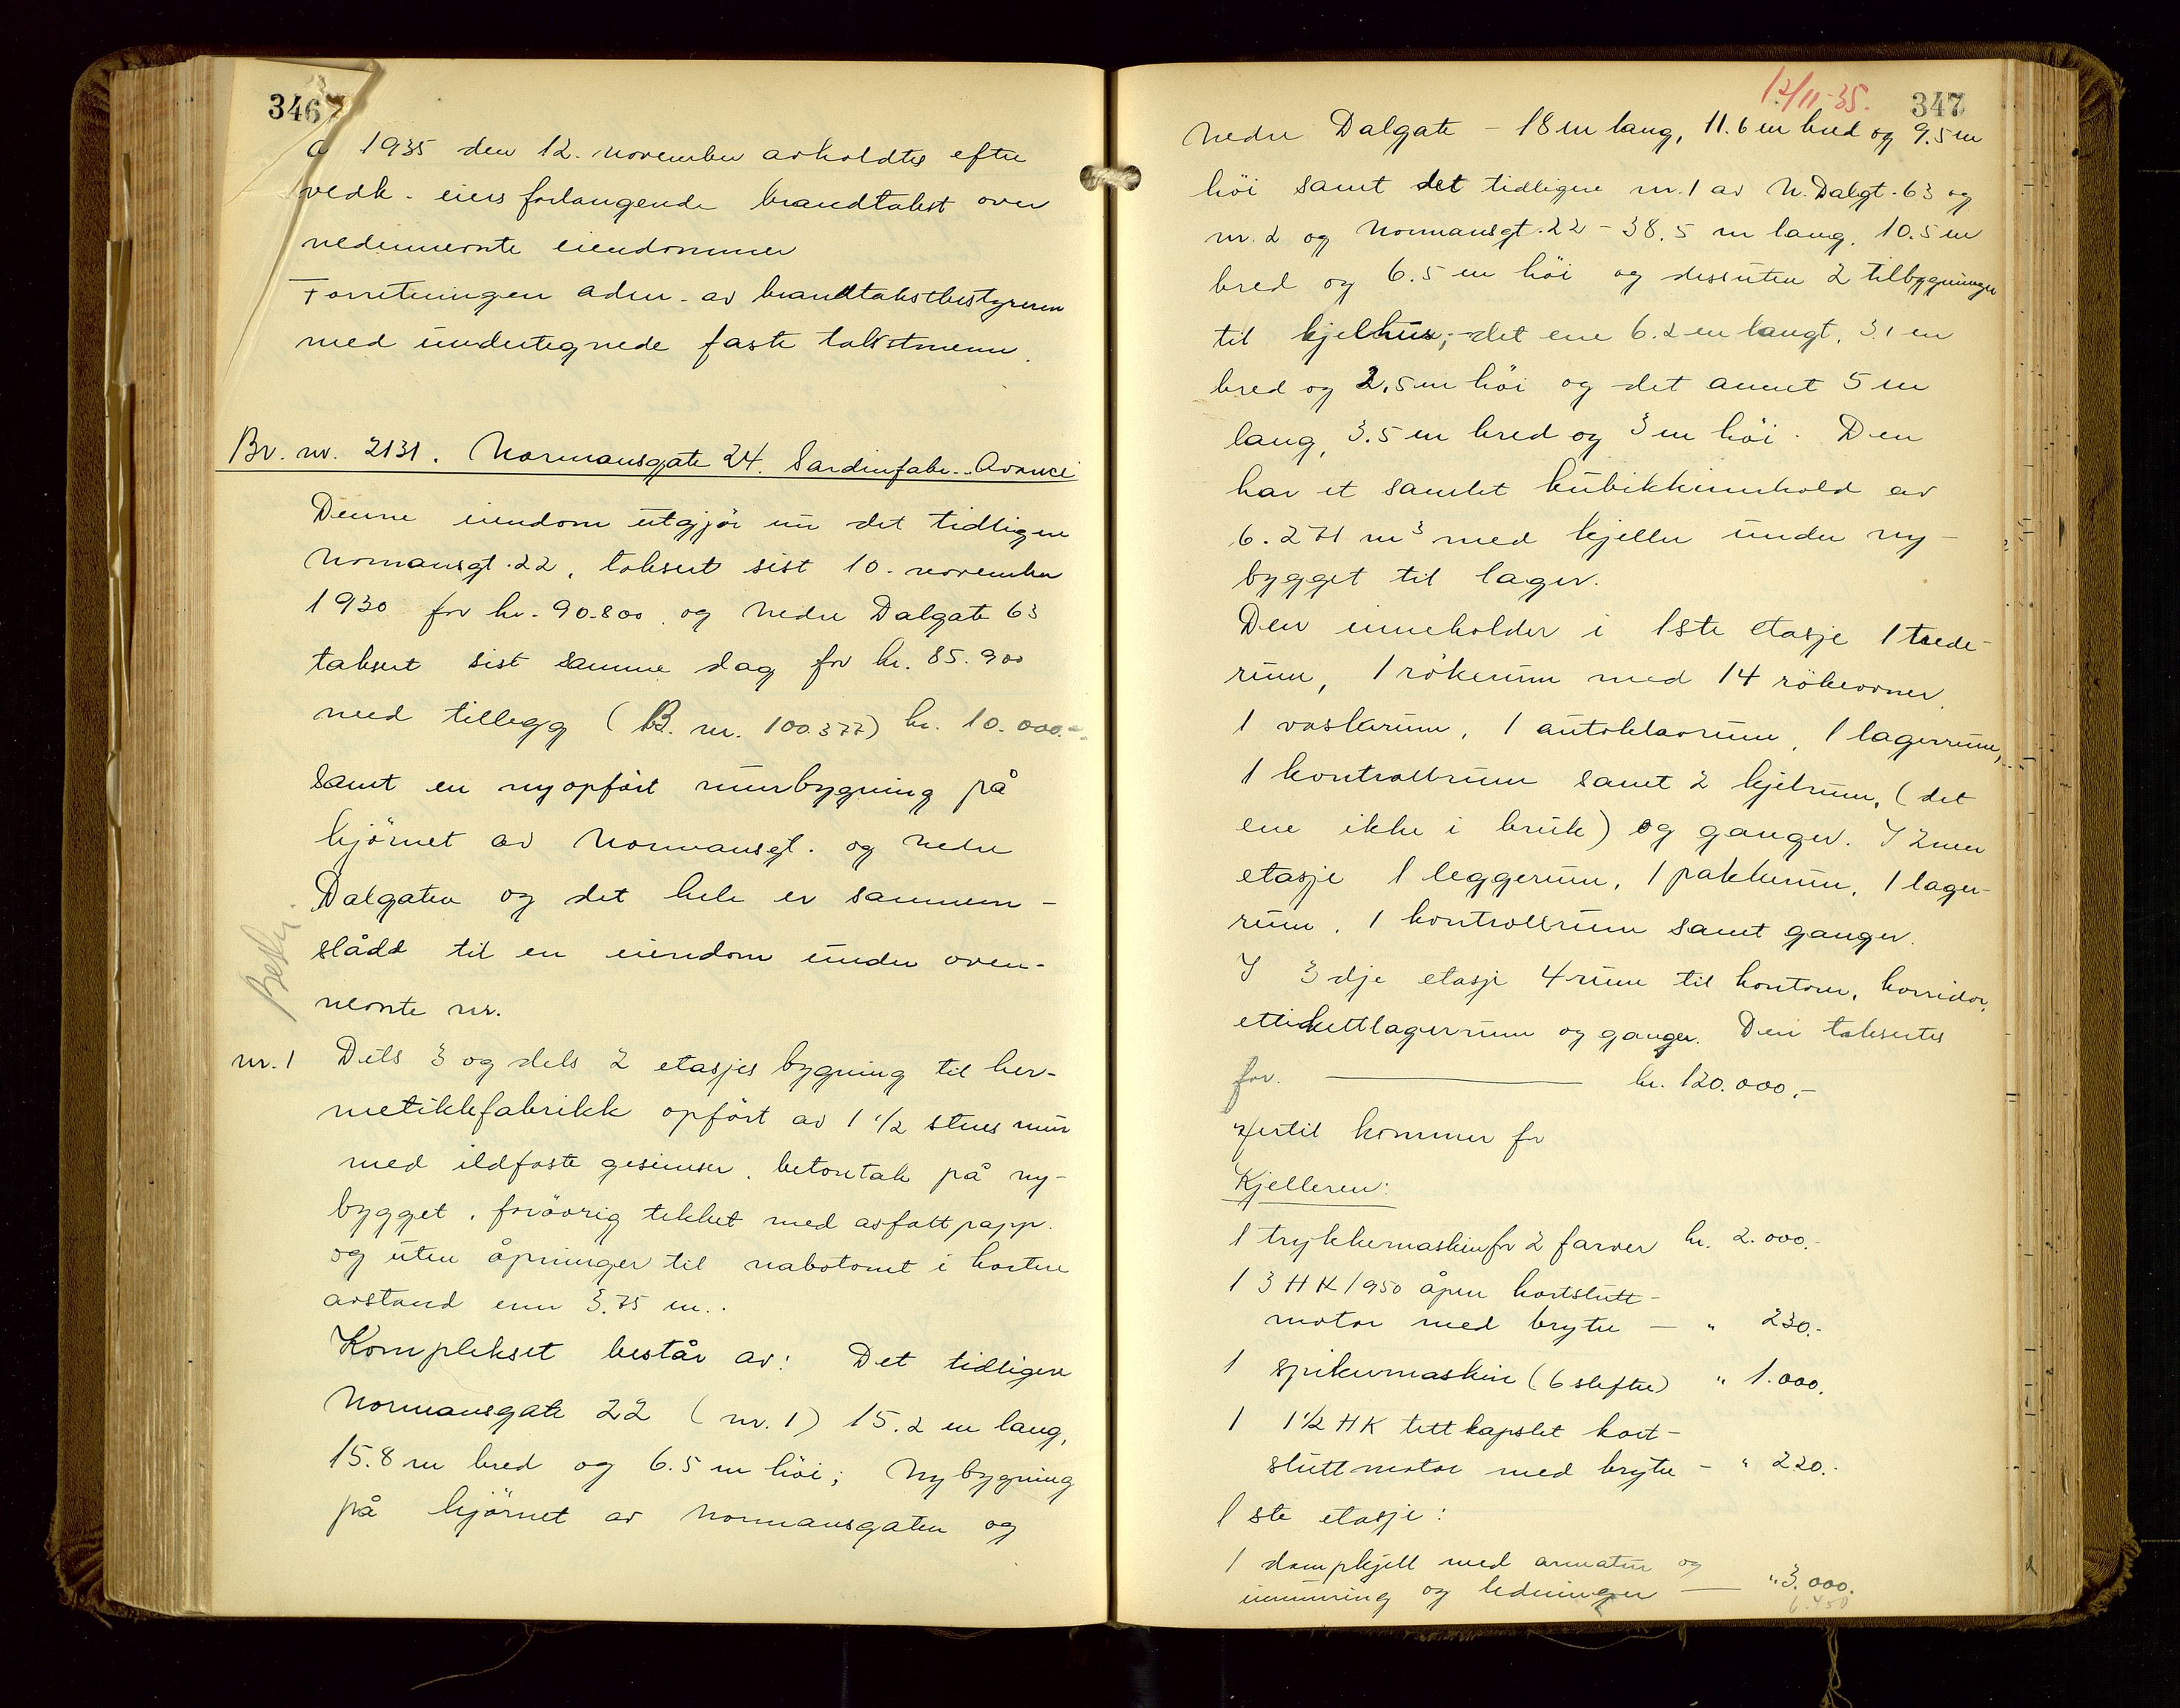 346
År 1935 den 12. november avholdtes efter
vedk. eiers forlangende brandtakst over
nedennevnte eiendommer
Forretningen adm. av brandtakstbestyreren
med undertegnede faste takstmenn.
Br. nr. 2131. Normansgate 24. Sardinfabr. "Avance"
Denne eiendom utgjør nu det tidligere
Normansgt. 22, taksert sist 10. november
1930 for kr. 90.800 og Nedre Dalgate 63
taksert sist samme dag for kr. 85.900
med tillegg (B. nr. 100.377) kr. 10.000.-
samt en nyopført murbygning på
hjørnet av Normansgt. og Nedre
Dalgaten og det hele er sammen-
slådd til en eiendom under oven-
nevnte nr.
nr. 1 Dels 3 og dels 2 etasjes bygning til her-
metikkfabrikk opført av 1 1/2 stens mur
med ildfaste gesimser, betontak på ny-
bygget, forøvrig tekket med asfaltpapp.
og uten åpninger til nabotomt i kortere
avstand enn 3.75 m..
Komplekset består av: Det tidligere
Normansgate 22 (nr. 1) 15.2 m lang,
15.8 m bred og 6.5 m høi; Nybygning
på hjørnet av Normansgaten og
12/11-35.
347
Nedre Dalgate - 18 m lang, 11.6 m bred og 9.5 m
høi samt det tidligere nr. 1 av N. Dalgt. 63 og
nr. 2 og Normansgt. 22 - 38.5 m lang, 10.5 m
bred og 6.5 m høi og dessuten 2 tilbygninger
til kjelhus; det ene 6.2 m langt, 3.1 m
bred og 2.5 m høi og det annet 5 m
lang, 3.5 m bred og 3 m høi. Den
har et samlet kubikkinnhold av
6.271 m³ med kjeller under ny-
bygget til lager.
Den inneholder i 1ste etasje 1 trede-
rum, 1 røkerum med 14 røkeovner,
1 vaskerum, 1 autoklavrum, 1 lagerrum,
1 kontrollrum samt 2 kjelrum, (det
ene ikke i bruk) og ganger. I 2nen
etasje 1 leggerum, 1 pakkerum, 1 lager-
rum, 1 kontrollrum samt ganger.
I 3dje etasje 4 rum til kontorer, korridor,
ettikettlagerrum og ganger. Den takseres
for. kr. 120.000.-
Hertil kommer for
Kjelleren:
1 trykkemaskin for 2 farver kr. 2.000.-
1 3 HK/950 åpen kortslutt-
motor med bryter - " 230.-
1 spikermaskin (6 ) " 1.000.
1 1 1/2 HK tettkapslet kort-
sluttmotor med bryter - " 220.-
1ste etasje:
1 dampkjell med armatur og
innmuring og ledninger " 3.000.
6.450